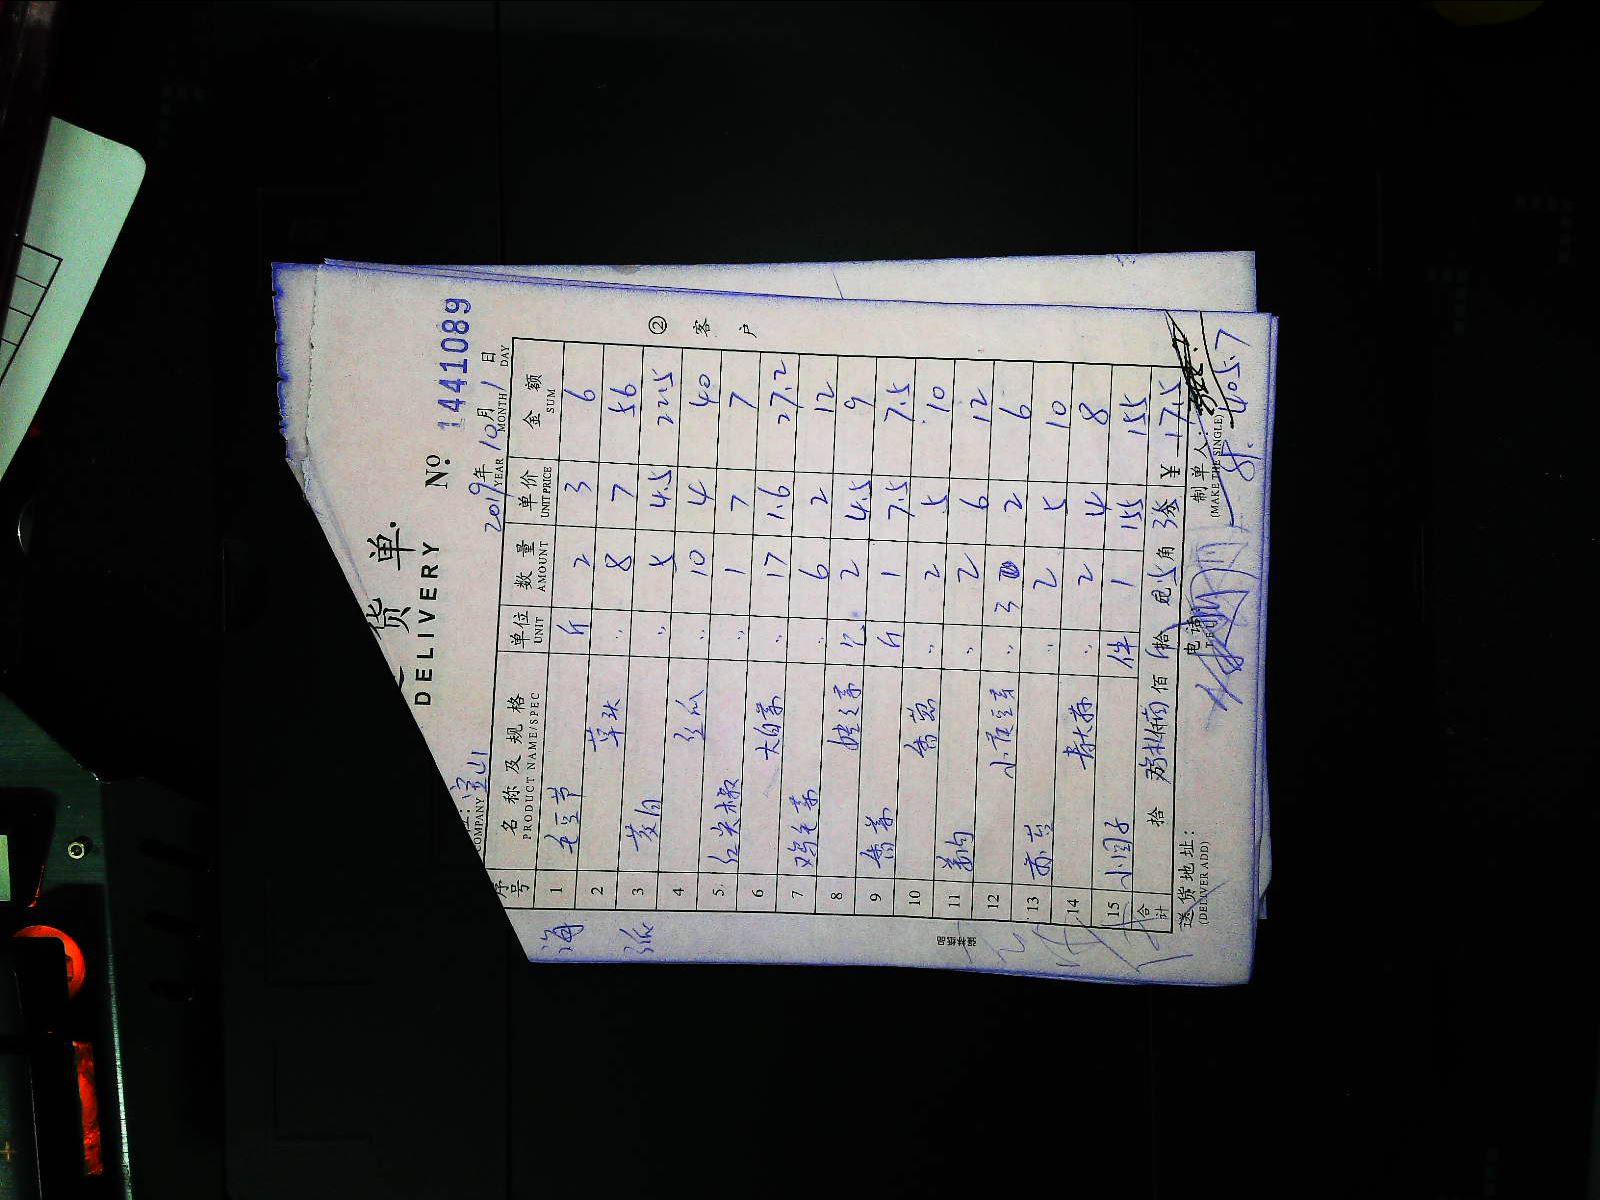 货 单
DELIVERY
№ 1441089
COMPANY 宝山
2019年 10月 1日
YEAR MONTH DAY
序号 名称及规格 单位 数量 单价 金额
PRODUCT NAME/SPEC UNIT AMOUNT UNIT PRICE SUM
1 毛豆节 斤 2 3 6
2 草头 〃 8 7 56
3 茭白 〃 5 4.5 22.5
4 丝瓜 〃 10 4 40
5 红尖椒 〃 1 7 7
6 大白菜 〃 17 1.6 27.2
7 鸡毛菜 〃 6 2 12
8 2 4.5 9
9 香菜 斤 1 7.5 7.5
10 香葱 〃 2 5 10
11 〃 2 6 12
12 〃 3 2 6
13 〃 2 5 10
14 〃 2 4 8
15 小圆子 件 1 155 155
合计 拾 佰 拾 角 分 ¥ 17.5
送货地址:
(DELIVER ADD)
电话:
制单人:
(MAKE THE SINGLE)
405.7
② 客户
海
派